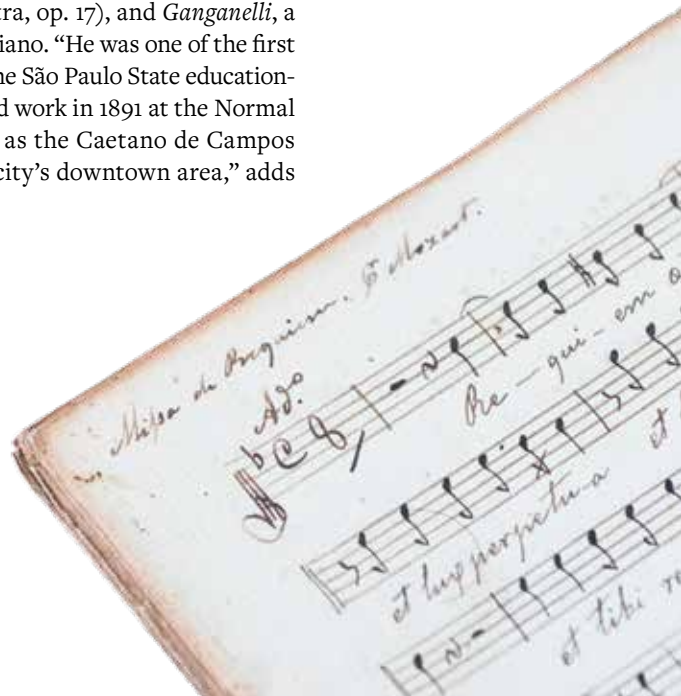 tra, op. 17), and Ganganelli, a
iano. “He was one of the first
ne São Paulo State education-
d work in 1891 at the Normal
as the Caetano de Campos
city’s downtown area,” adds
Missa de Requiem. Mozart.
Ado.
Re – qui – em
et
et lux perpetu-a
et tibi re